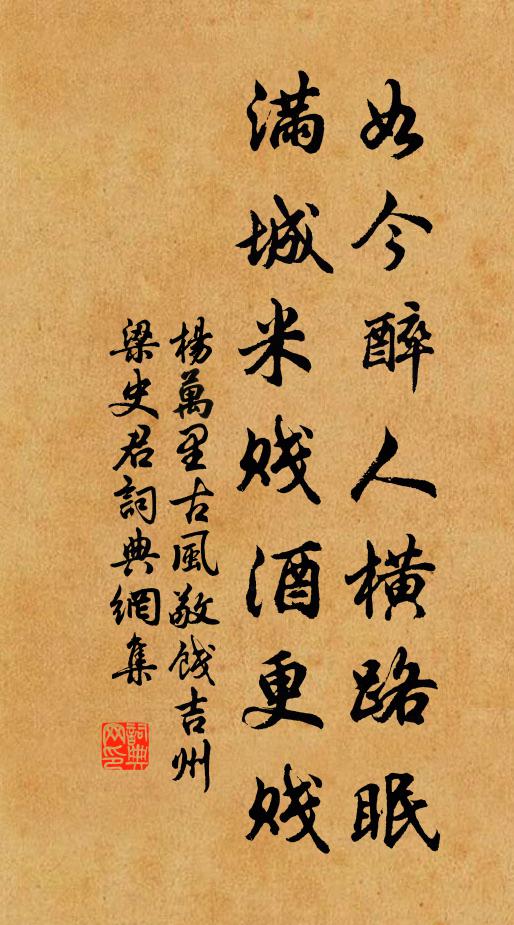 如今醉人横路眠
满城米贱酒更贱
楊萬里古風敬餞吉州
梁史君詞典網集
詞典
網印